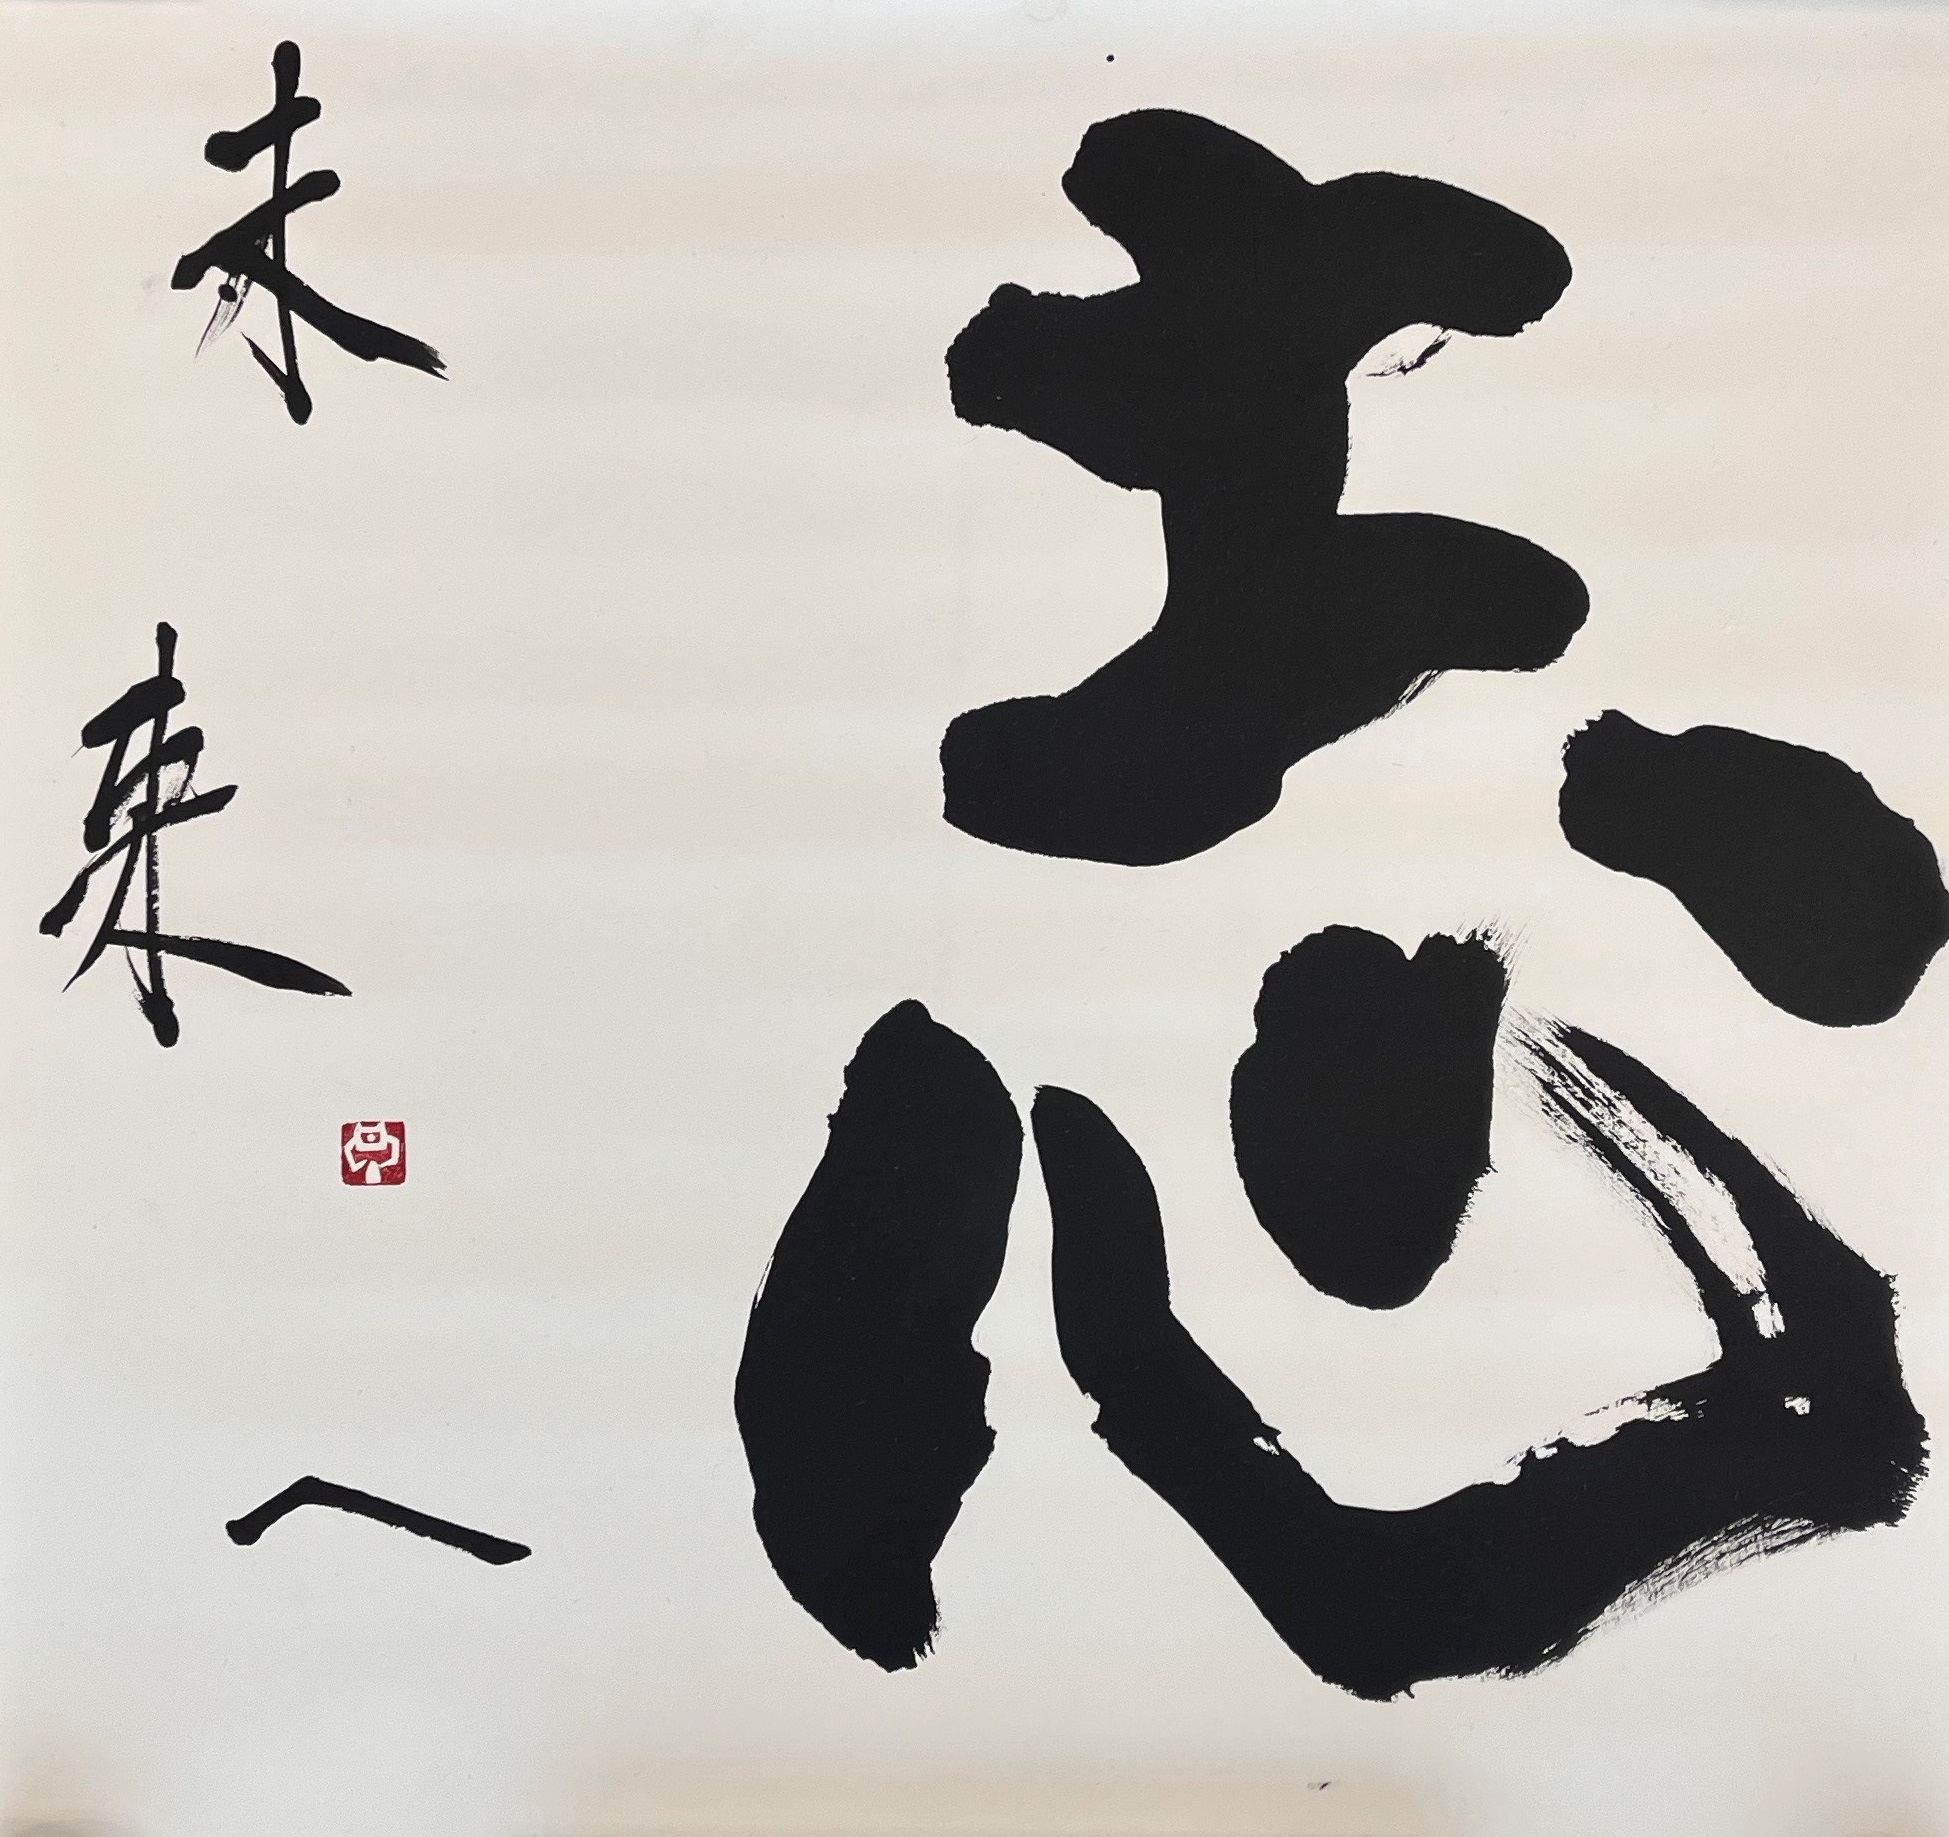 志
未来へ